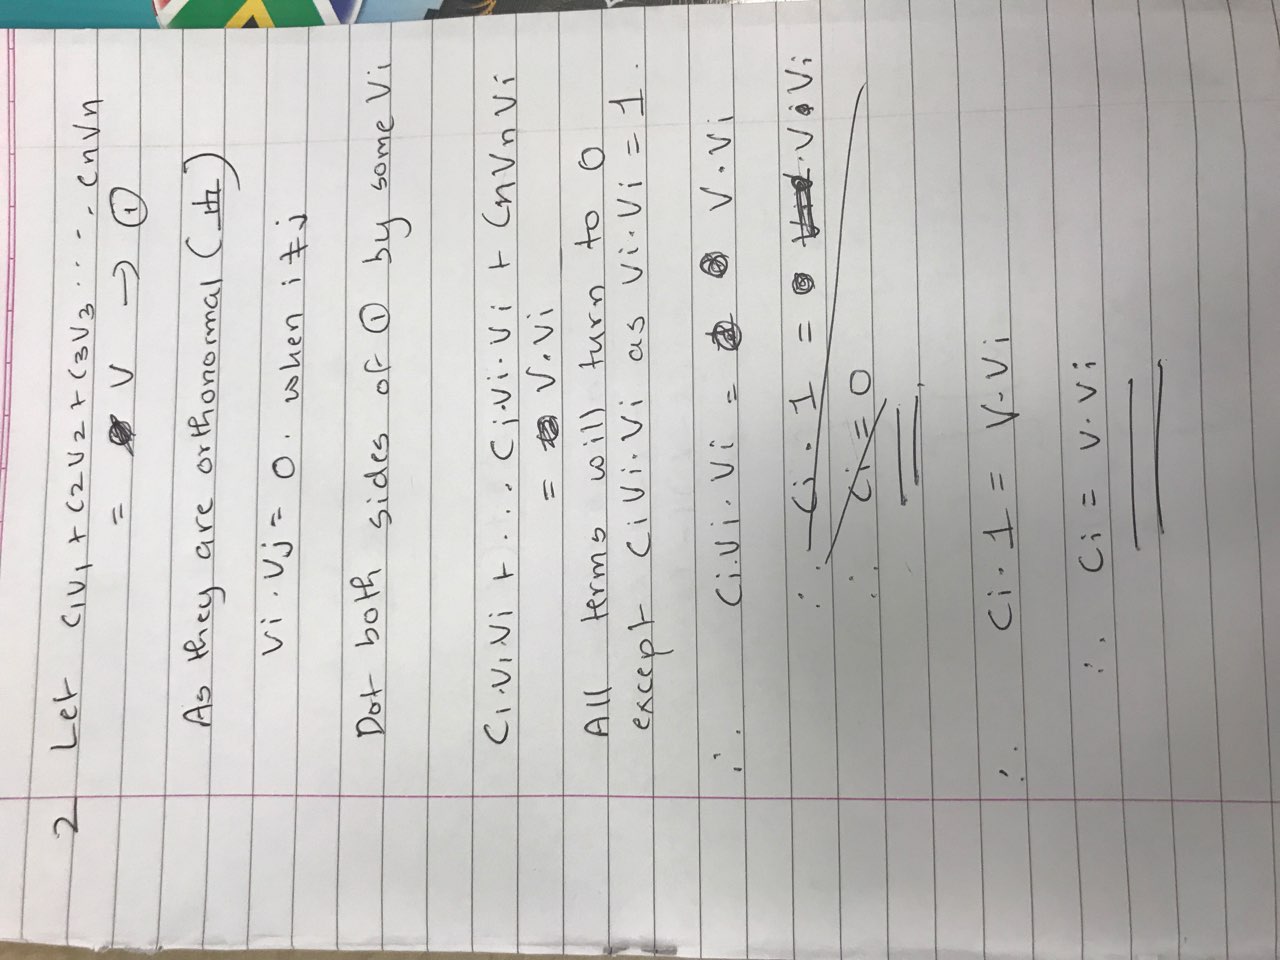 2 Let c1v1 + c2v2 + c3v3 ..... cnvn
= v → ①
As they are orthonormal
vi . vj = 0 . when i ≠ j
Dot both sides of ① by some vi
c1.v1.vi + .... ci.vi.vi + cnvn vi
= v.vi
All terms will turn to 0
except ci vi.vi as vi.vi = 1.
∴ ci.vi.vi = v.vi
∴ ci . 1 = v.vi
∴ ci = 0
∴ ci . 1 = v.vi
∴ ci = v.vi